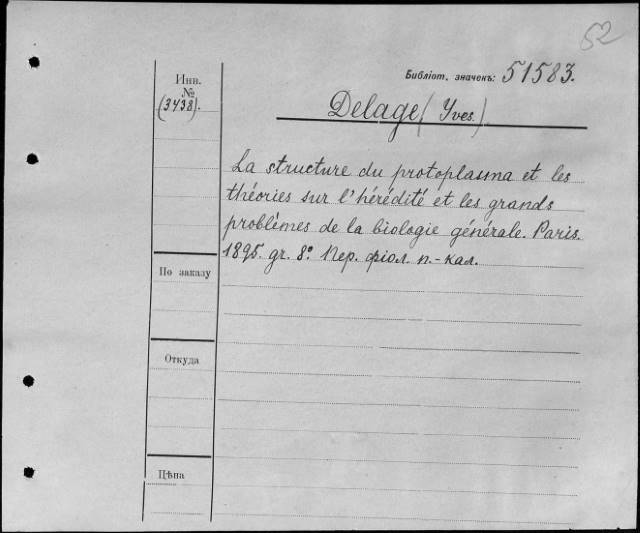 52
Библіот. значекъ: 51583.
Инв.
№
(3438).
Delage (Yves.)
La structure du protoplasma et les
théories sur l'hérédité et les grands
problèmes de la biologie générale. Paris.
1895. gr. 8° Пер. фіол. п.-кал.
По заказу
Откуда
Цѣна